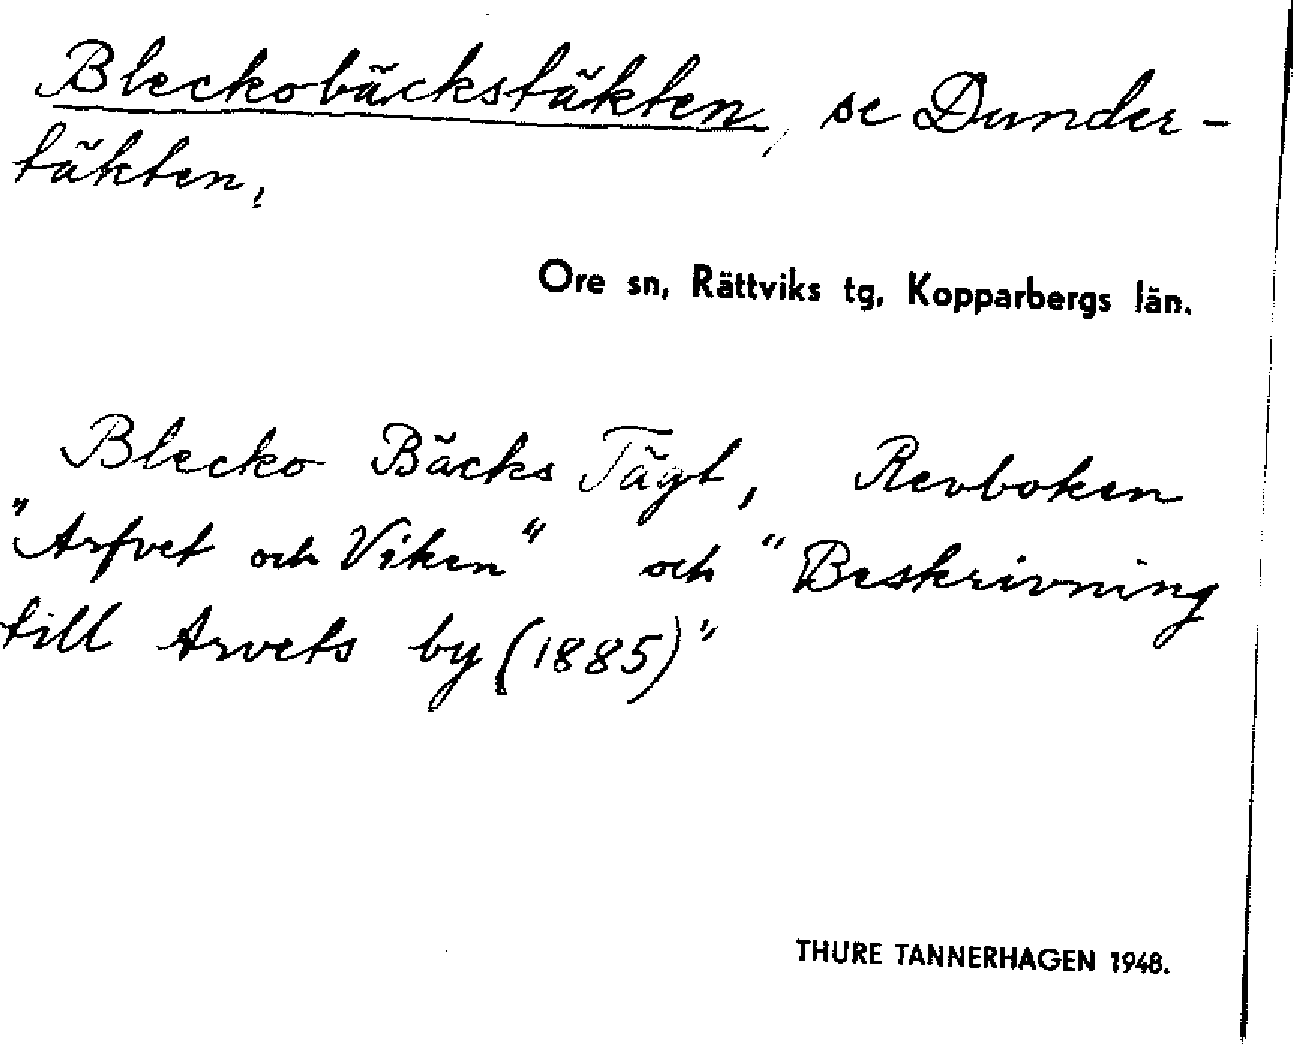 Bleckobäckstäkten, se Dunder-
täkten,
Ore sn, Rättviks tg, Kopparbergs län.
Blecko Bäcks Tägt, Revboken
"Arfvet och Viken" och "Beskrivning
till Arvets by (1885)"
THURE TANNERHAGEN 1948.